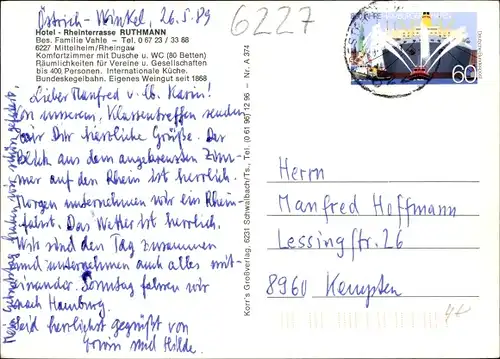 Östrich-Winkel, 26.5.89
6227
Hotel - Rheinterrasse RUTHMANN
Bes. Familie Vahle - Tel. 0 67 23 / 33 88
6227 Mittelheim/Rheingau
Komfortzimmer mit Dusche u. WC (80 Betten)
Räumlichkeiten für Vereine u. Gesellschaften
bis 400 Personen. Internationale Küche.
Bundeskegelbahn. Eigenes Weingut seit 1868
Lieber Manfred u. lb. Karin!
Von unserem Klassentreffen senden
wir Dir herzliche Grüße. Der
Blick aus dem angekreuzten Zim-
mer auf den Rhein ist herrlich.
Morgen unternehmen wir ein Rhein-
fahrt. Das Wetter ist herrlich.
Wir sind den Tag zusammen
und unternehmen auch alles mit-
einander. Sonntag fahren wir
nach Hamburg.
Seid herzlichst gegrüßt von
Erwin und Hilde.
Korr's Großverlag, 6231 Schwalbach/Ts., Tel. (0 61 96) 12 96 - Nr. A 374
60
Herrn
Manfred Hoffmann
Lessingstr. 26
8960 Kempten